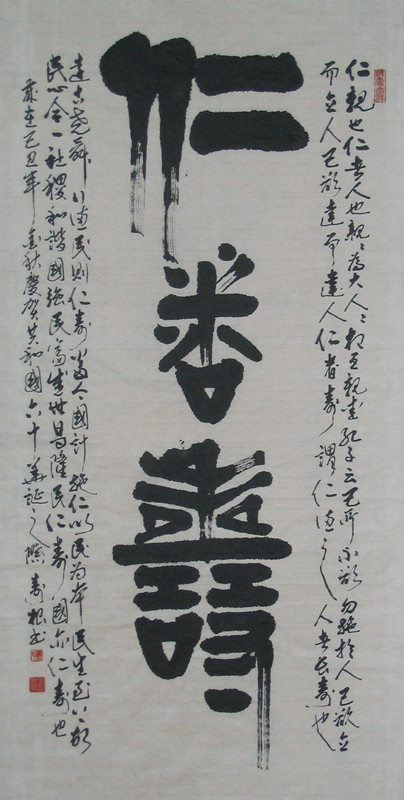 仁親也仁者人也親親為大人人相互親愛孔子云己所不欲勿施於人己欲立
而立人己欲達而達人仁者壽謂仁德之人者長壽也
仁者壽
遠古堯舜以德民則仁壽當今國計施仁以民為本民生至上故
民心合一社稷和諧國強民富盛世昌隆民仁壽國亦仁壽也
歲在己丑年金秋慶賀共和國六十華誕之際壽根書